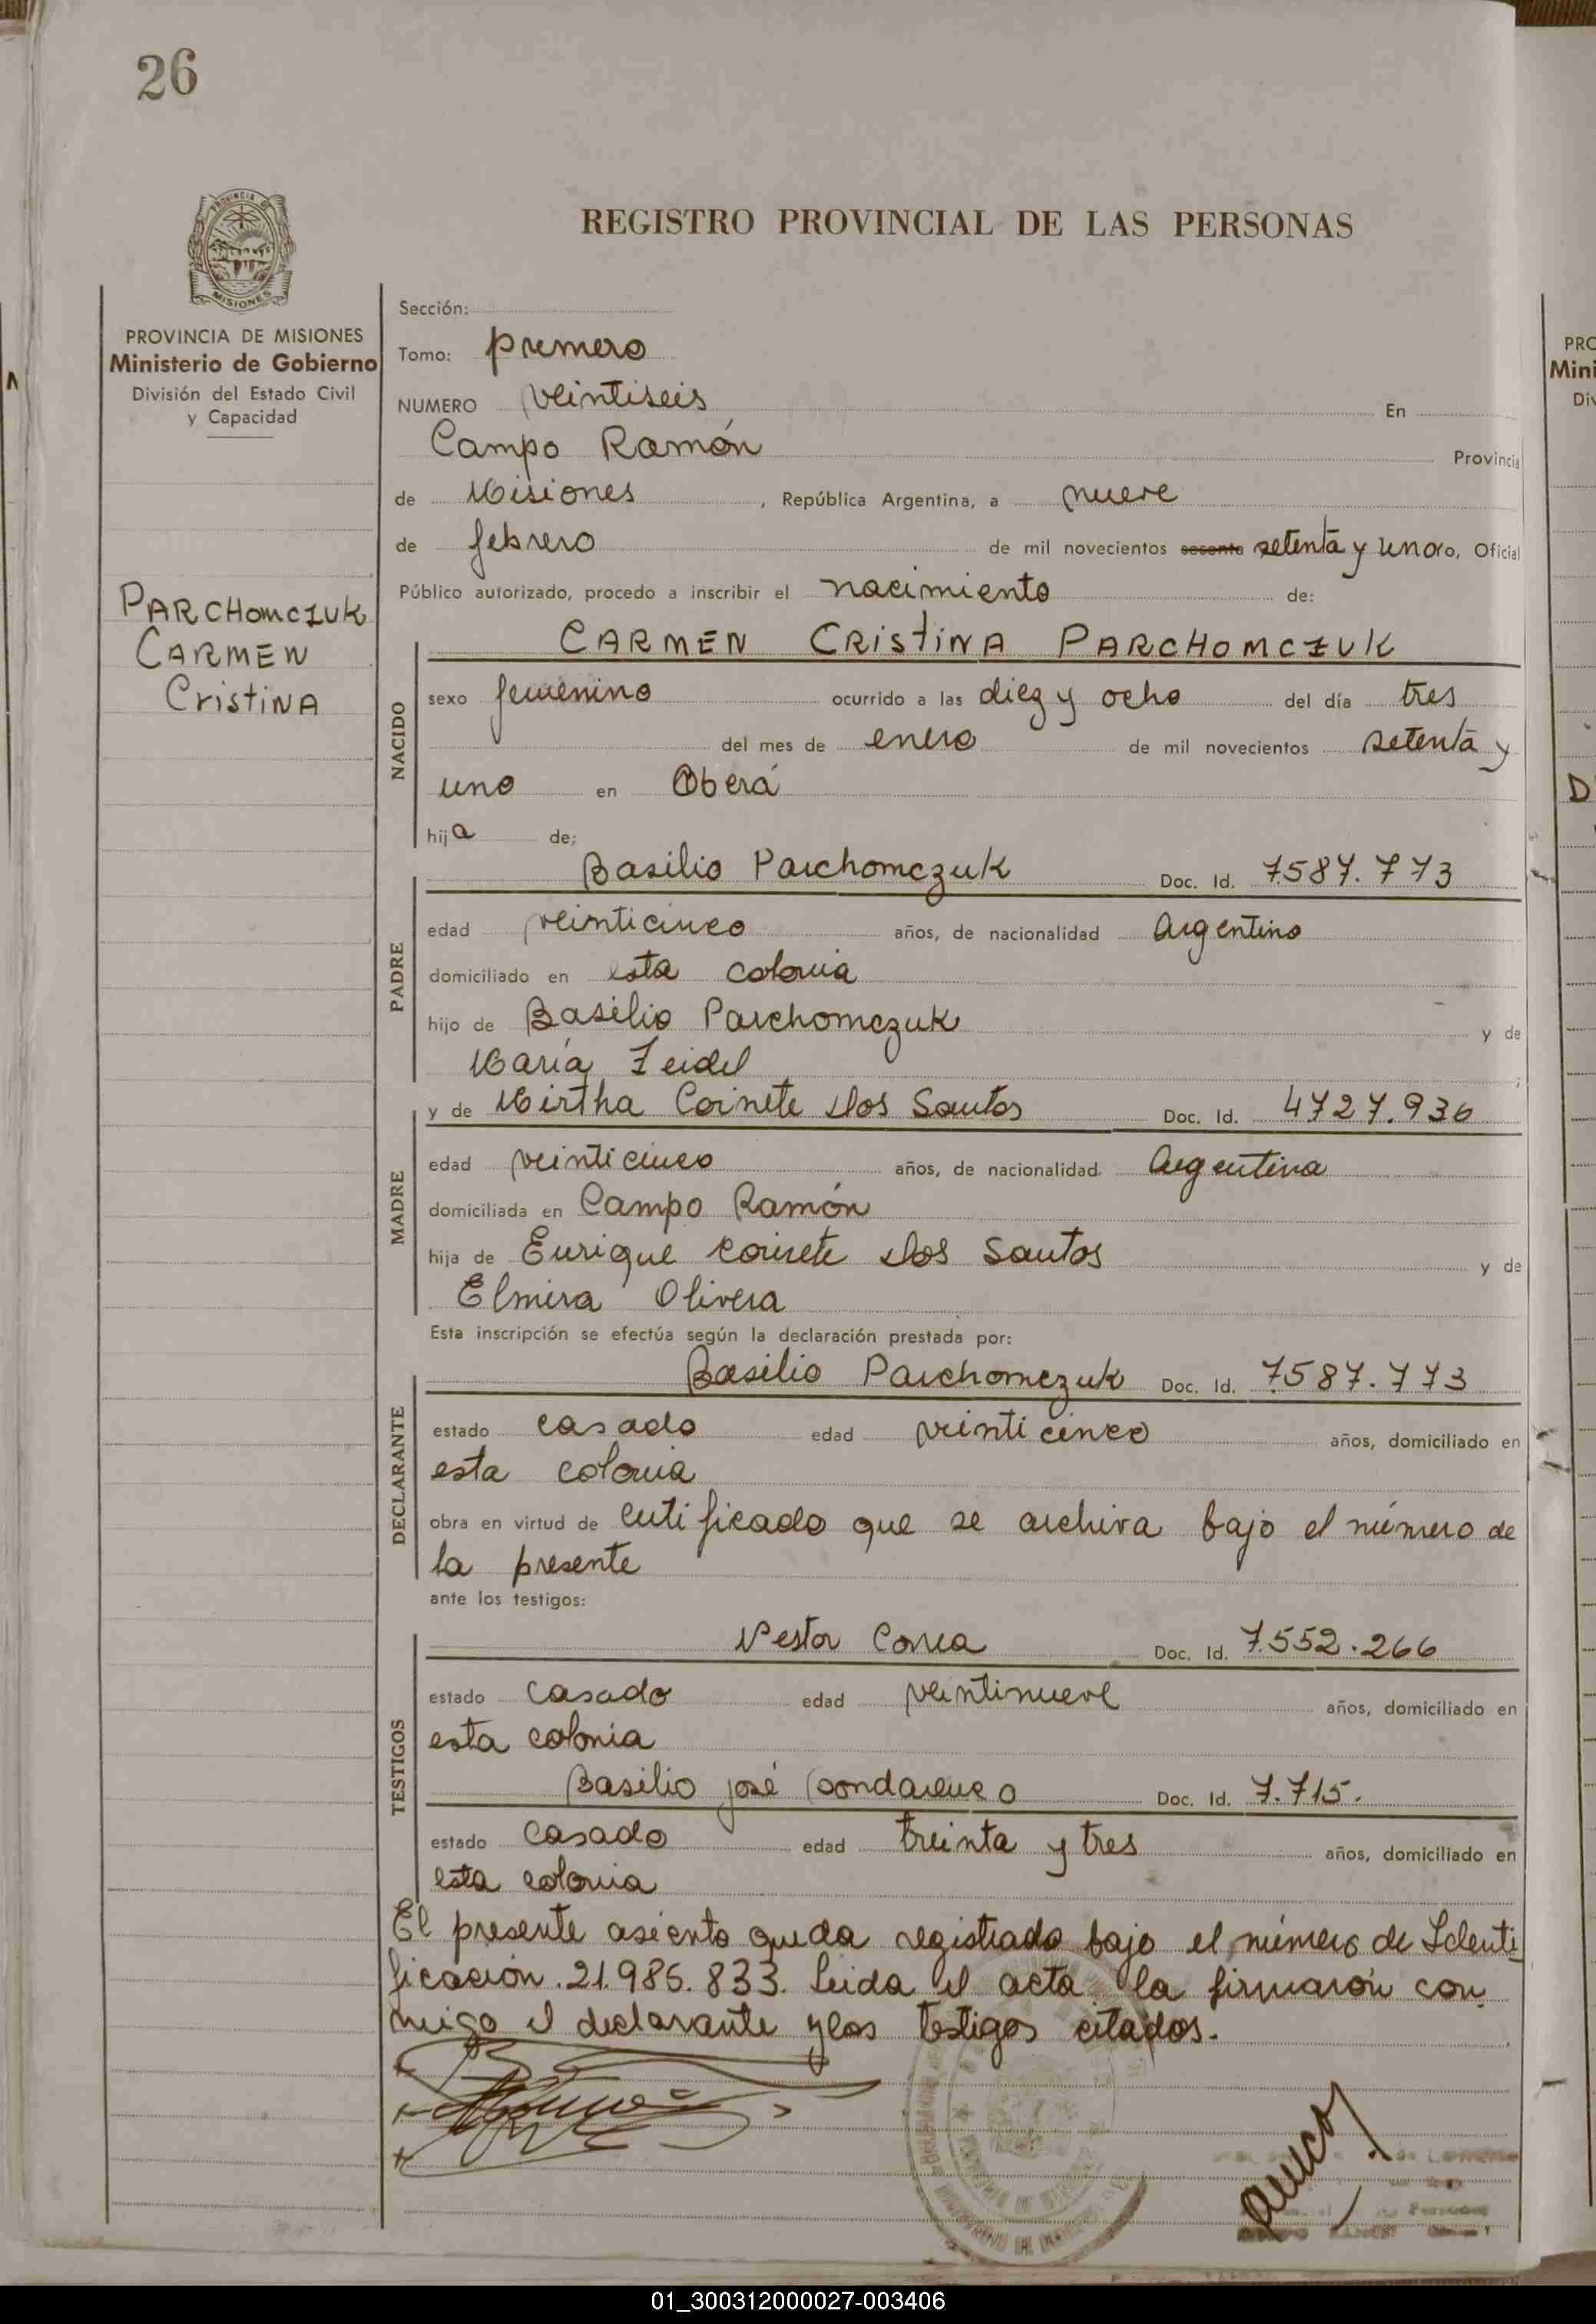 26
PROVINCIA DE
MISIONES
REGISTRO PROVINCIAL DE LAS PERSONAS
PROVINCIA DE MISIONES
Ministerio de Gobierno
División del Estado Civil
y Capacidad
PARCHOMCZUK
CARMEN
CRISTINA
Sección:
Tomo: primero
NUMERO veintiseis En
Campo Ramón Provincia
de Misiones, República Argentina, a nueve
de febrero de mil novecientos sesenta setenta y uno, Oficial
Público autorizado, procedo a inscribir el nacimiento de:
CARMEN CRISTINA PARCHOMCZUK
NACIDO
sexo femenino ocurrido a las diez y ocho del día tres
del mes de enero de mil novecientos setenta y
uno en Oberá
hija de;
Basilio Parchomczuk Doc. Id. 7.587.773
PADRE
edad veinticinco años, de nacionalidad Argentino
domiciliado en esta colonia
hijo de Basilio Parchomczuk y de
María Zeidel
MADRE
y de Mirtha Coinete dos Santos Doc. Id. 4.727.936
edad veinticinco años, de nacionalidad Argentina
domiciliada en Campo Ramón
hija de Enrique Coinete dos Santos y de
Elmira Olivera
Esta inscripción se efectúa según la declaración prestada por:
Basilio Parchomczuk Doc. Id. 7.587.773
DECLARANTE
estado casado edad veinticinco años, domiciliado en
esta colonia
obra en virtud de certificado que se archiva bajo el número de
la presente
ante los testigos:
Nestor Correa Doc. Id. 7.552.266
TESTIGOS
estado casado edad veintinueve años, domiciliado en
esta colonia
Basilio José Doc. Id. 7.715.
estado casado edad treinta y tres años, domiciliado en
esta colonia
El presente asiento queda registrado bajo el número de Identi
ficación 21.986.833. Leida el acta la firmarón con
migo el declarante y los testigos citados.
PRO
Mini
Div
D
01_300312000027-003406